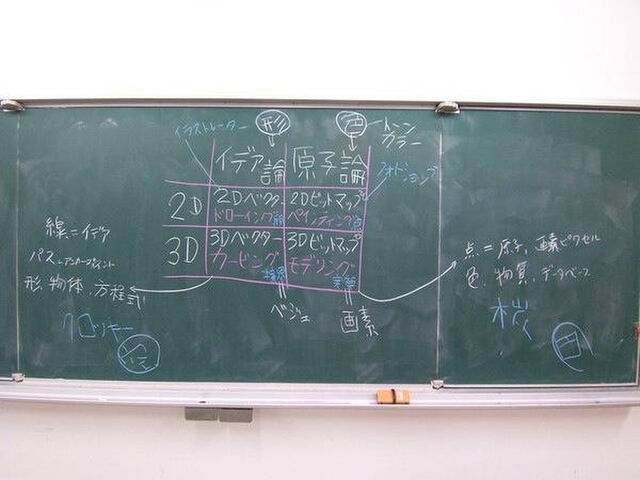 イラストレーター
形
色
トーン
カラー
イデア論
原子論
フォトショップ
2D
2Dベクター
ドローイング
2Dビットマップ
ペインティング
3D
3Dベクター
カービング
3Dビットマップ
モデリング
ベジェ
画素
線=イデア
パス=アンカーポイント
形、物体、方程式
クロッキー
点=原子、画素ピクセル
色、物質、データベース
木炭